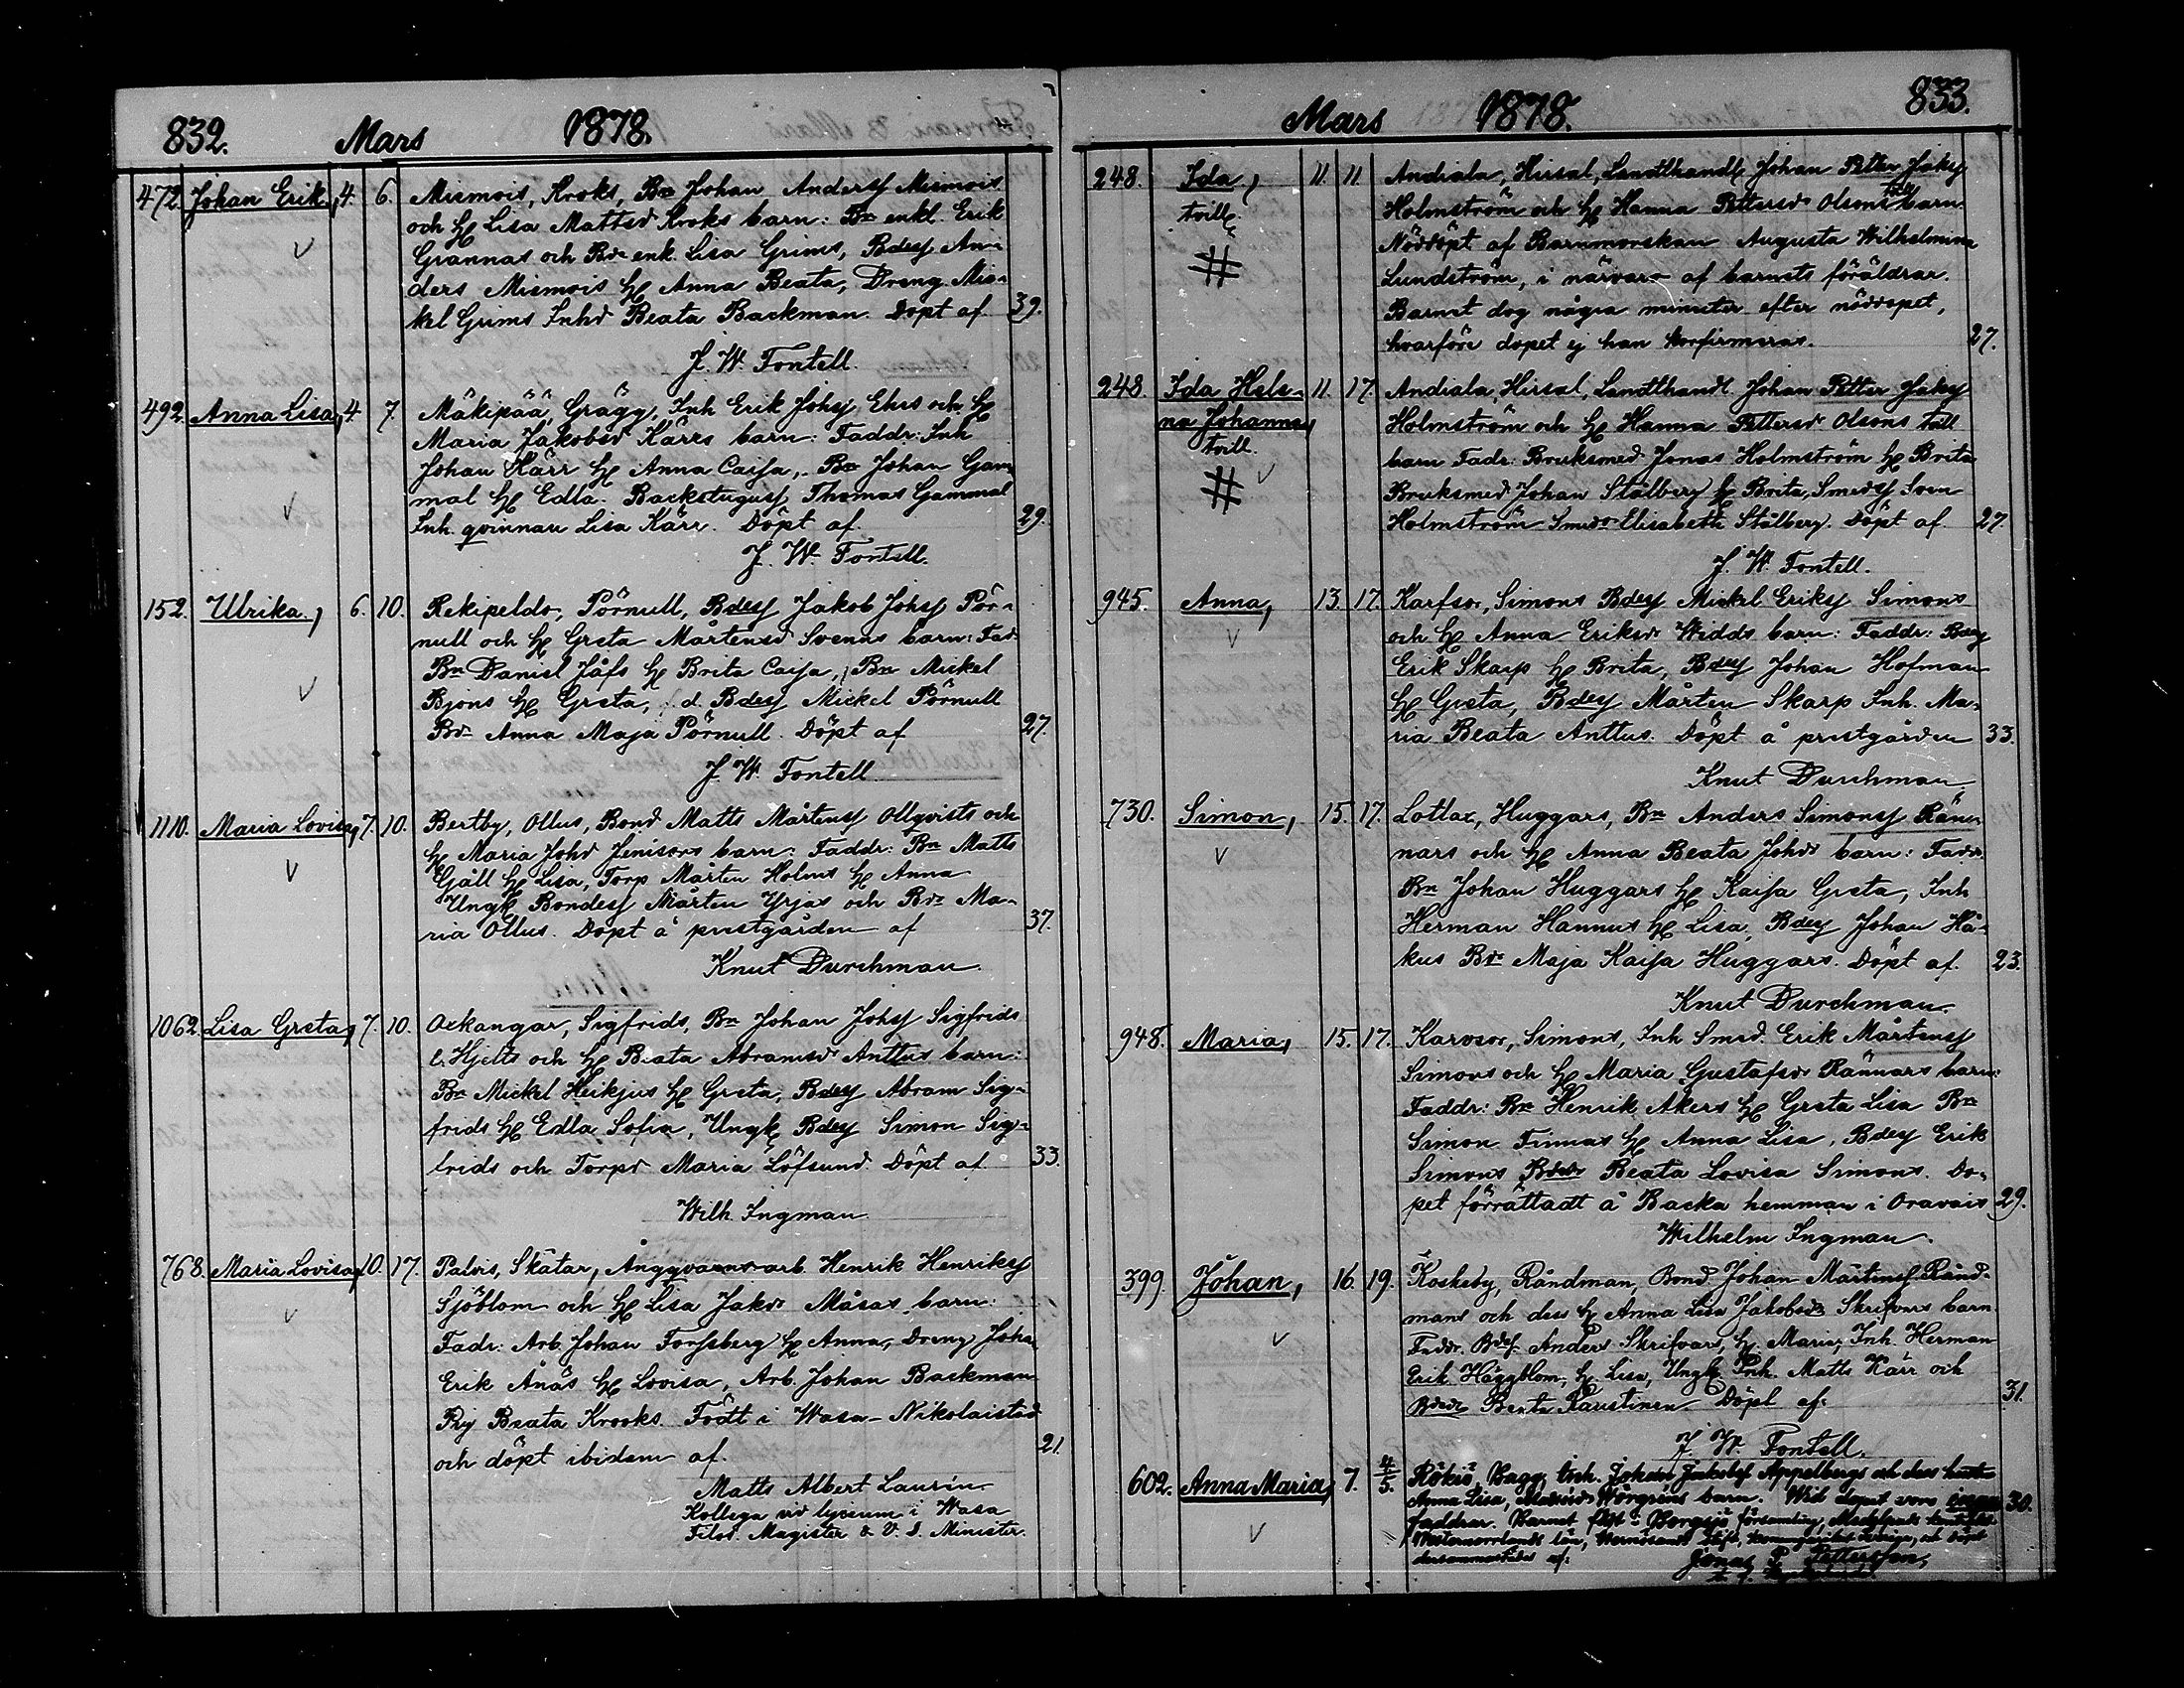 832. Mars 1878.
472. Johan Erik, 4. 6. Mismois, Kroks, Bn Johan Andersf Mismois
och hH Lisa Mattsd Kroks barn: Bn enkl. Erik
Grannas och Bde enk. Lisa Grims, Bdesf An-
ders Mismois hH Anna Beata, Dreng Mic-
kel Grims Inhd Beata Backman. Döpt af 39.
J. W. Fontell.
492. Anna Lisa, 4. 7. Mäkipää, Grägg, Inh Erik Johsf Ehrs och hH
Maria Jakobsd Kärrs barn: Faddr: Inh
Johan Kärr hH Anna Caisa, Bn Johan Gam-
mal hH Edla. Backstugusf Thomas Gammal
Inh. qvinnan Lisa Kärr. Döpt af 29.
J. W. Fontell.
152. Ulrika, 6. 10. Rekipeldo, Pörnull, Bdesf Jakob Johsf Pör-
null och hH Greta Mårtensd Svenns barn: Fad-
Bn Daniel Jåfs hH Brita Caisa, Bn Mickel
Bjons hH Greta, d. Bdesf Mickel Pörnull
Bde Anna Maja Pörnull. Döpt af 27.
J. W. Fontell
1110. Maria Lovisa, 7. 10. Bertby, Ollus, Bond Matts Mårtensf Ollqvists och
hH Maria Johd Jenisors barn: Faddr: Bn Matts
Gäll hH Lisa, Torp Mårten Holms hH Anna
Ungk Bondesf Mårten Yrjas och Bde Ma-
ria Ollus. Döpt å prestgården af 37.
Knut Durchman.
1062. Lisa Greta, 7. 10. Oxkangar, Sigfrids, Bn Johan Johsf Sigfrids
l. Hjelts och hH Beata Abramsd Anttus barn:
Bn Mickel Heikjus hH Greta, Bdesf Abram Sig-
frids hH Edla Sofia, Ungk Bdesf Simon Sig-
frids och Torpd Maria Löfsund. Döpt af 33.
Wilh. Ingman
768. Maria Lovisa, 10. 17. Palvis, Skåtar, Ångqvarns arb. Henrik Henriksf
Sjöblom och hH Lisa Jakd Måsas barn:
Fadr: Arb. Johan Forssberg hH Anna, Dreng Johan
Erik Ånäs hH Lovisa, Arb. Johan Backman
Pig Beata Krooks. Född i Wasa-Nikolaistad
och döpt ibidem af 21.
Matts Albert Laurin
Kollega vid lyceum i Wasa
Filos. Magister & V. d. Minister.
Mars 1878. 833.
248. Ida, 11. 11. Andiala, Hirsal, Landthandl Johan Petter Jaksf
tvill
Holmström och hH Hanna Pettersd Olsons tvill barn
Nöddöpt af Barnmorskan Augusta Wilhelmina
Lundström, i närvar- af barnets föräldrar.
Barnet dog några minuter efter nöddopet,
hvarföre dopet ej han konfirmeras. 27.
248. Ida Hele- 11. 17. Andiala, Hirsal, Landthandl Johan Petter Jaksf
na Johanna, Holmström och hH Hanna Pettersd Olsons tvill
tvill. barn Fadr: Bruksmed Jonas Holmström hH Brita
Bruksmed Johan Stålberg hH Brita, Smedsf Sven
Holmström Smedd Elisabeth Stålberg. Döpt af 27.
J. W. Fontell.
945. Anna, 13. 17. Karfsor, Simons Bdesf Mickel Eriksf Simons
och hH Anna Eriksd Widds barn: Faddr: Bdesf
Erik Skarp hH Brita, Bdesf Johan Hofman
hH Greta, Bdesf Mårten Skarp Inh. Ma-
ria Beata Anttus. Döpt å prestgården 33.
Knut Durchman
730. Simon, 15. 17. Lotlax, Huggars, Bn Anders Simonsf Rän-
nars och hH Anna Beata Johd barn: Fadr
Bn Johan Huggars hH Kaisa Greta, Inh
Herman Hannus hH Lisa, Bdesf Johan Hå-
kus Bde Maja Kaisa Huggars. Döpt af 23.
Knut Durchman.
948. Maria, 15. 17. Karvsor, Simons, Inh Smed. Erik Mårtensf
Simons och hH Maria Gustafsd Rännars barn:
Faddr: Bn Henrik Akers hH Greta Lisa Bn
Simon Finnas hH Anna Lisa, Bdesf Erik
Simons Bded Beata Lovisa Simons. Do-
pet förrättadt å Backa hemman i Oravais 29.
Wilhelm Ingman.
399. Johan, 16. 19. Koskeby, Råndman, Bond Johan Mårtensf Rånd-
mans och dess h Anna Lisa Jakobsd Skrifvars barn
Faddr. Bdsf. Anders Skrifvars, h. Maria, Inh. Herman
Erik Häggblom, h. Lisa, Ungk Inh. Matts Kärr och
Bded Beata Raustinen Döpt af: 31.
J. W. Fontell.
602. Anna Maria, 7. 4/5. Rökiö, Bagg, Inh. Johan Jakobsf Appelbergs och dess hustru
Anna Lisa, Wörgrens barn. Wid dopet voro inga 30.
faddrar. Barnet född i Borgsjö församling, Medelpads
Westernorrlands län, Hernösands stift, Sverige, och döpt
dersammastädes af:
Jonas P. Pettersson,